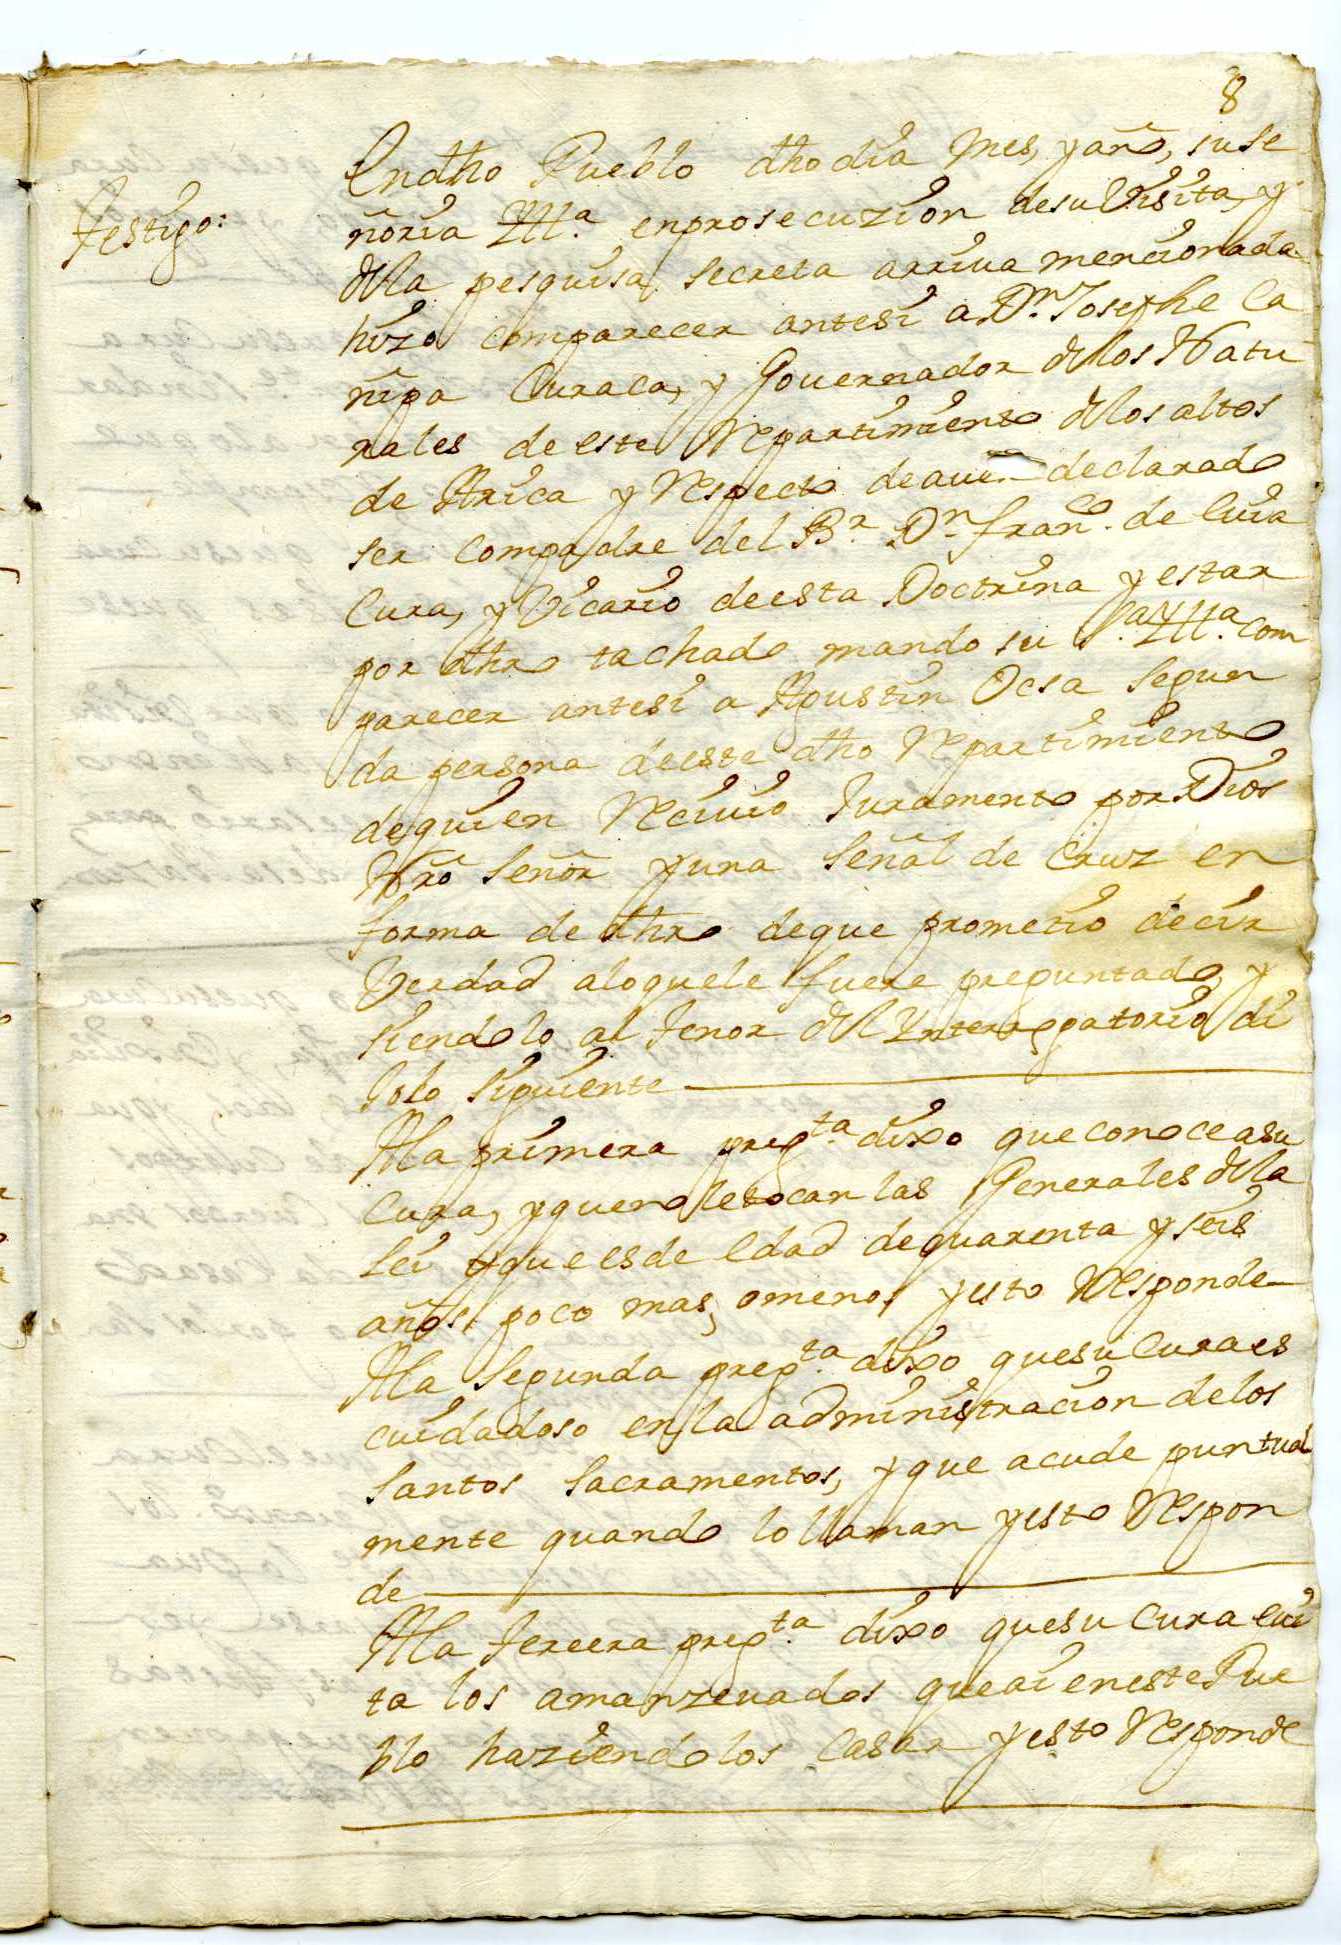 8
Testigo:
En dho Pueblo dho dia mes, y año, su Se
ñoria Illª. en prosecuzion de su Visita, y
dela pesquisa secreta arriua mencionada
hizo comparecer antesi a Dn. Josephe Ca
nipa Curaca, y Gouernador delos Natu
rales de este Repartimiento delos altos
de Arica y Respecto de auer declarado
ser compadre del Br. Dn. Franco. de Cuia
Cura, y Vicario de esta Doctrina y estar
por dhro tachado mando su Sª. Illª. com
parecer antesi a Agustin Ocsa segun
da persona de este dho Repartimiento
de quien Reciuio Juramento por Dios
Nrõ Señor y una señal de Cruz en
forma de dhro de que prometio decir
Verdad aloquele fuere preguntado, y
siendolo al tenor del Ynterrogatorio di
jo lo siguiente
Ala primera pregta. dixo que conoce asu
Cura, y que no le tocan las Generales dela
Lei y que es de edad de quarenta y seis
años, poco mas, o menos y esto Responde
Ala segunda pregta. dixo que su Cura es
cuidadoso en la administracion delos
santos sacramentos, y que acude puntual
mente quando lo llaman y esto Respon
de
Ala tercera pregta. dixo que su Cura eui
ta los amanzeuados que ai en este Pue
blo haziendolos casar y esto Responde